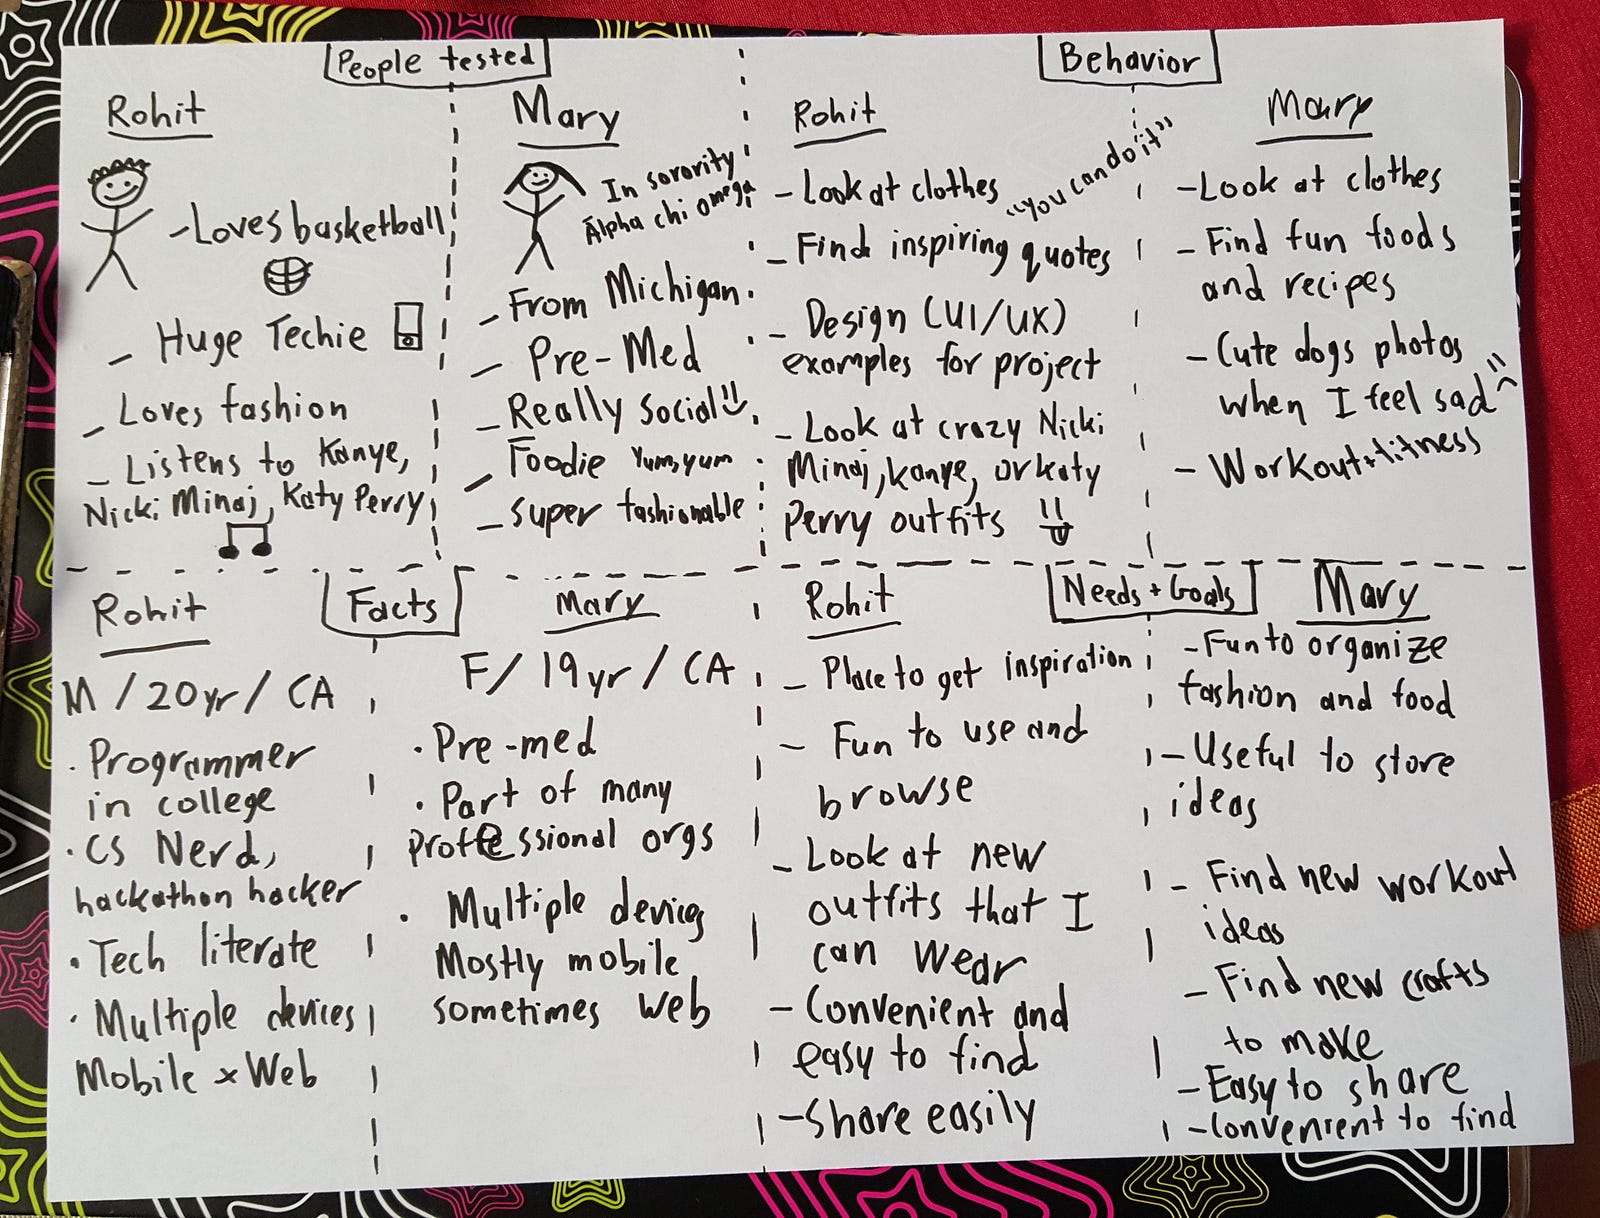 People tested
Rohit
- Loves basketball
- Huge Techie
- Loves fashion
- Listens to Kanye,
Nicki Minaj, Katy Perry
Mary
In sorority
Alpha chi omega
- From Michigan
- Pre-Med
- Really Social
- Foodie Yum, yum
- super fashionable
Behavior
Rohit
- Look at clothes
"you can do it"
- Find inspiring quotes
- Design (UI/UX)
examples for project
- Look at crazy Nicki
Minaj, kanye, or katy
Perry outfits
Mary
- Look at clothes
- Find fun foods
and recipes
- Cute dogs photos
when I feel sad
- Workout + fitness
Facts
Rohit
M / 20yr / CA
· Programmer
in college
· CS Nerd,
hackathon hacker
· Tech literate
· Multiple devices
Mobile x Web
Mary
F / 19yr / CA
· Pre-med
· Part of many
proffessional orgs
· Multiple devices
Mostly mobile
sometimes web
Needs + Goals
Rohit
- Place to get inspiration
- Fun to use and
browse
- Look at new
outfits that I
can wear
- Convenient and
easy to find
- Share easily
Mary
- Fun to organize
fashion and food
- Useful to store
ideas
- Find new workout
ideas
- Find new crafts
to make
- Easy to share
- Convenient to find